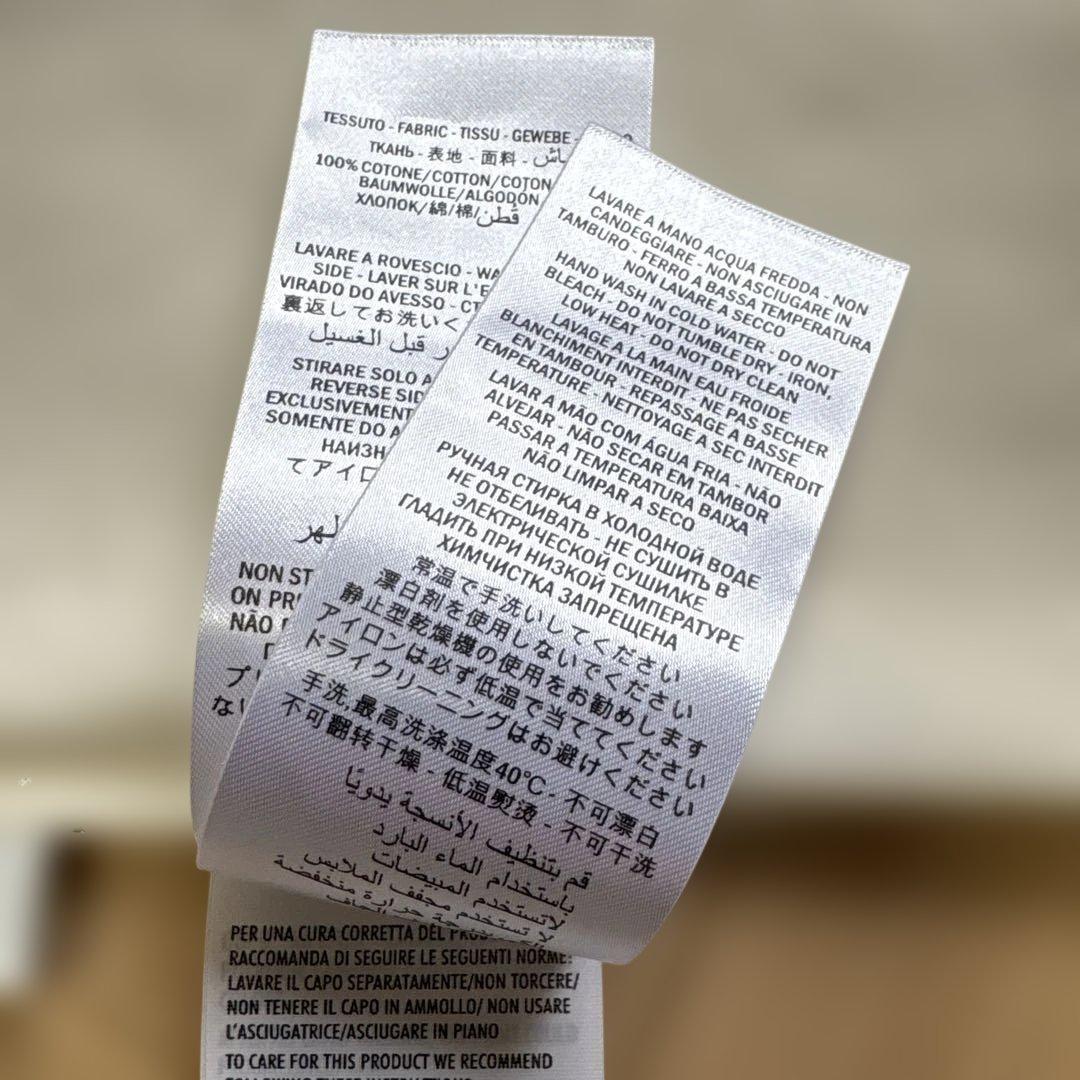 TESSUTO - FABRIC - TISSU - GEWEBE -
ТКАНЬ - 表地 - 面料 - قماش
100% COTONE/COTTON/COTON
BAUMWOLLE/ALGODÓN
ХЛОПОК/綿/棉/قطن
LAVARE A ROVESCIO -
SIDE - LAVER SUR
VIRADO DO AVESSO -
裏返してお洗いく
قبل الغسيل
STIRARE SOLO A
REVERSE
SOMENTE DO
てアイロ
NON
ON
NÃO
プ
LAVARE A MANO ACQUA FREDDA - NON
CANDEGGIARE - NON ASCIUGARE IN
TAMBURO - FERRO A BASSA TEMPERATURA
NON LAVARE A SECCO
HAND WASH IN COLD WATER - DO NOT
BLEACH - DO NOT TUMBLE DRY - IRON,
LOW HEAT - DO NOT DRY CLEAN
LAVAGE A LA MAIN EAU FROIDE
BLANCHIMENT INTERDIT - NE PAS SECHER
EN TAMBOUR - REPASSAGE A BASSE
TEMPERATURE - NETTOYAGE A SEC INTERDIT
LAVAR A MÃO COM ÁGUA FRIA - NÃO
ALVEJAR - NÃO SECAR EM TAMBOR
PASSAR A TEMPERATURA BAIXA
NÃO LIMPAR A SECO
РУЧНАЯ СТИРКА В ХОЛОДНОЙ ВОДЕ
НЕ ОТБЕЛИВАТЬ - НЕ СУШИТЬ В
ЭЛЕКТРИЧЕСКОЙ СУШИЛКЕ
ГЛАДИТЬ ПРИ НИЗКОЙ ТЕМПЕРАТУРЕ
ХИМЧИСТКА ЗАПРЕЩЕНА
常温で手洗いしてください
漂白剤を使用しないでください
静止型乾燥機の使用をお勧めします
アイロンは必ず低温で当ててください
ドライクリーニングはお避けください
手洗,最高洗涤温度40℃ - 不可漂白
不可翻转干燥 - 低温熨烫 - 不可干洗
قم بتنظيف الأنسجة يدويًا
باستخدام الماء البارد
لاتستخدم المبيضات
لا تستخدم مجفف الملابس
حرارة منخفضة
PER UNA CURA CORRETTA DEL
RACCOMANDA DI SEGUIRE LE SEGUENTI NORME:
LAVARE IL CAPO SEPARATAMENTE/NON TORCERE/
NON TENERE IL CAPO IN AMMOLLO/ NON USARE
L'ASCIUGATRICE/ASCIUGARE IN PIANO
TO CARE FOR THIS PRODUCT WE RECOMMEND